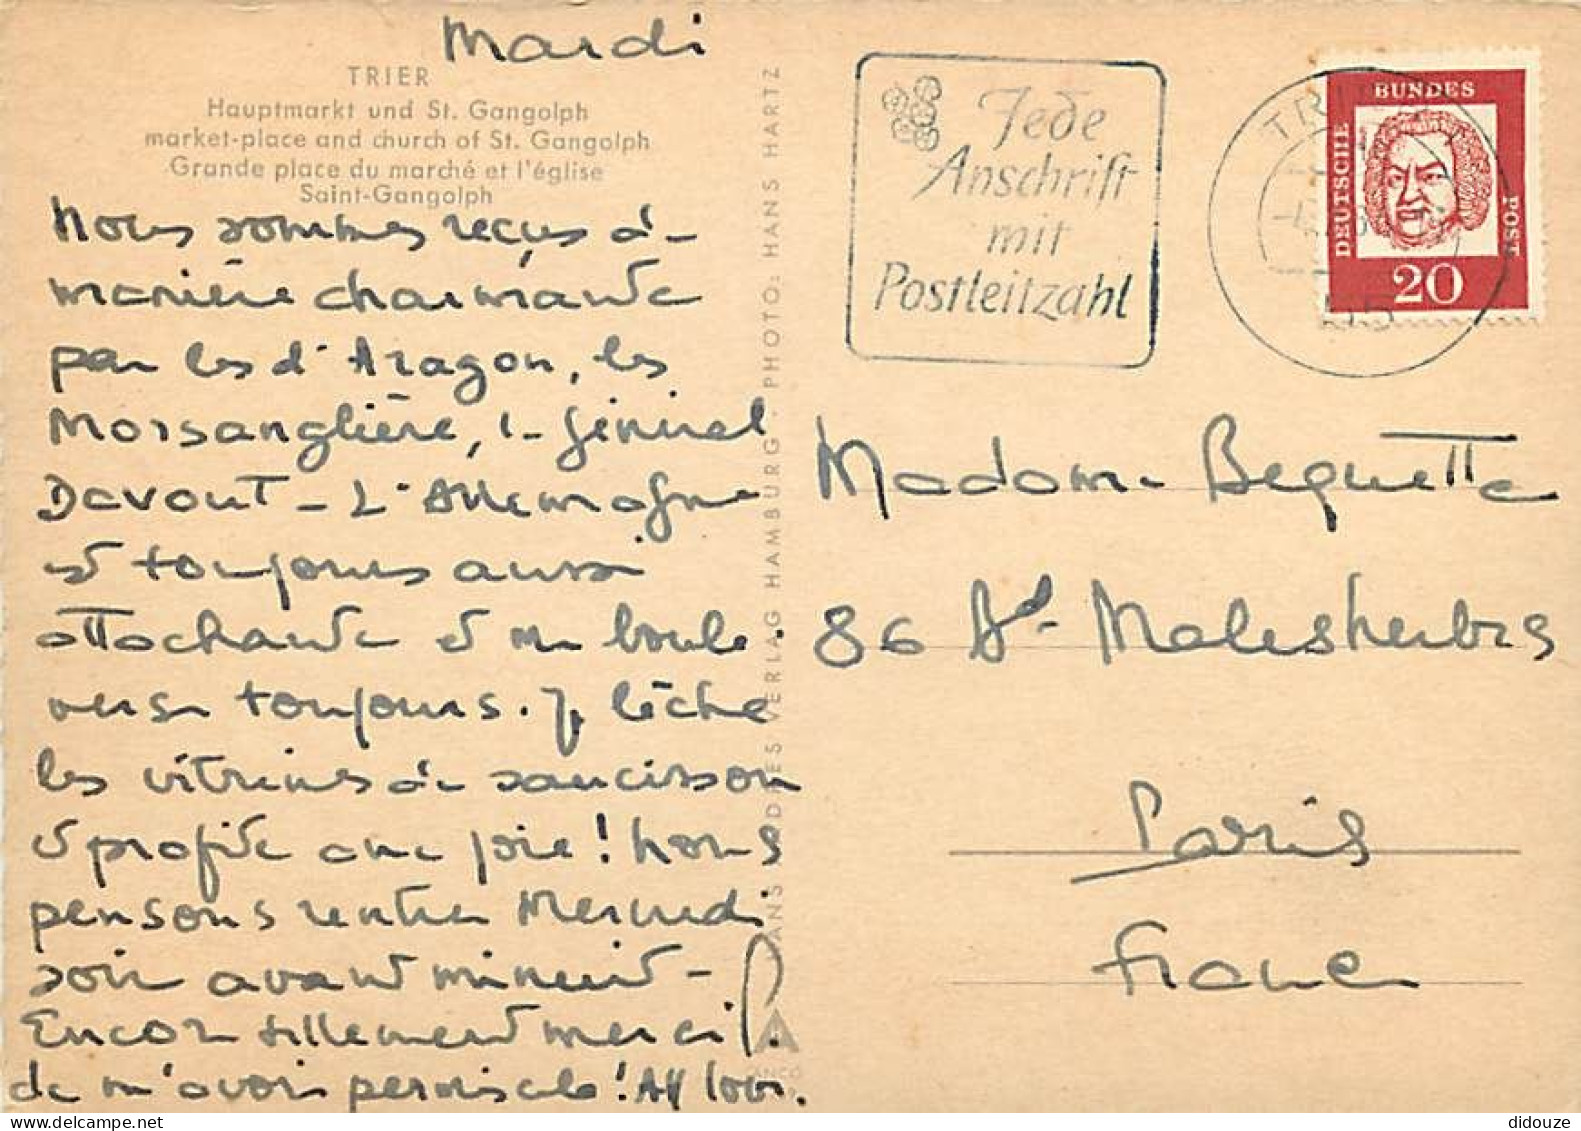 Mardi
TRIER
Hauptmarkt und St. Gangolph
market-place and church of St. Gangolph
Grande place du marché et l'église
Saint-Gangolph
Nous sommes reçus de
manière charmante
par les d'Aragon, les
Morsanglière, le général
Davout - L'Allemagne
est toujours aussi
attachante et me boule
verse toujours. Je lèche
les vitrines de saucisson
et profite avec joie! Nous
pensons rentrer Mercredi
soir avant minuit -
Encore tellement merci
de m'avoir permis cela! All love.
HANS ANDRES VERLAG HAMBURG · PHOTO: HANS HARTZ
Jede
Anschrift
mit
Postleitzahl
TRIER
55
DEUTSCHE
BUNDES
POST
20
Madame Bequette
86 Bd Malesherbes
Paris
France
delcampe.net
didouze